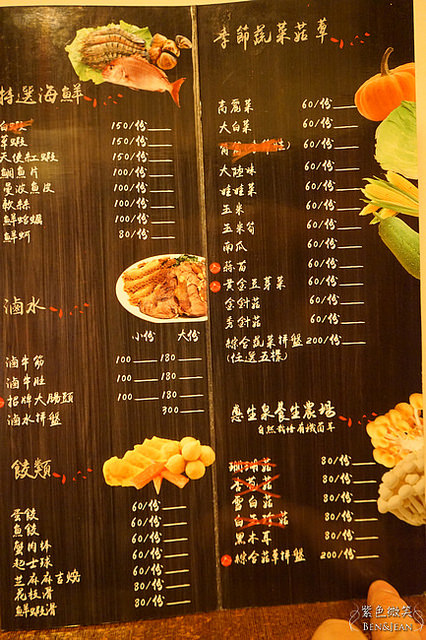 特選海鮮
白蝦 150/份
草蝦 150/份
天使紅蝦 150/份
鯛魚片 100/份
曼波魚皮 100/份
軟絲 100/份
鮮蛤蠣 100/份
鮮蚵 80/份
滷水
小份 大份
滷牛筋 100 180
滷牛肚 100 180
招牌大腸頭 100 180
滷水拼盤 300
餃類
蛋餃 60/份
魚餃 60/份
蟹肉棒 60/份
起士球 60/份
芝麻麻吉燒 60/份
花枝滑 80/份
鮮蝦滑 80/份
季節蔬菜菇草
高麗菜 60/份
大白菜 60/份
60/份
大陸妹 60/份
娃娃菜 60/份
玉米 60/份
玉米筍 60/份
南瓜 60/份
蒜苗 60/份
黃金豆芽菜 60/份
金針菇 60/份
秀針菇 60/份
綜合蔬菜拼盤 200/份
(任選五樣)
應生泉養生農場
自然栽培有機菌草
珊瑚菇 80/份
本菇菇 80/份
雪白菇 80/份
80/份
黑木耳 80/份
綜合菇草拼盤 200/份
紫色微笑
BEN&JEAN